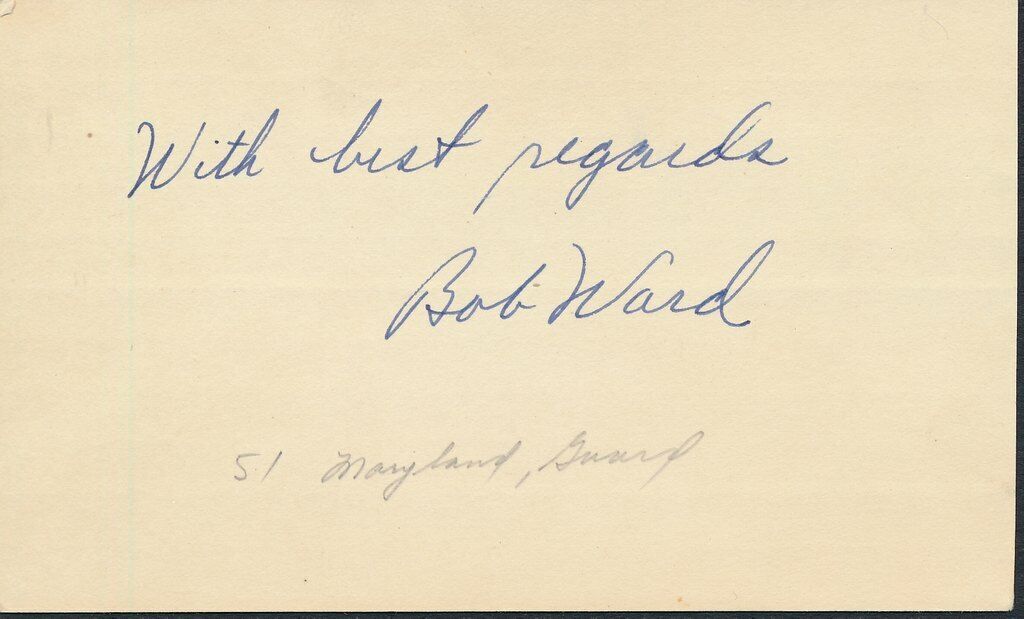 With best regards
Bob Ward
51 Maryland, Guard